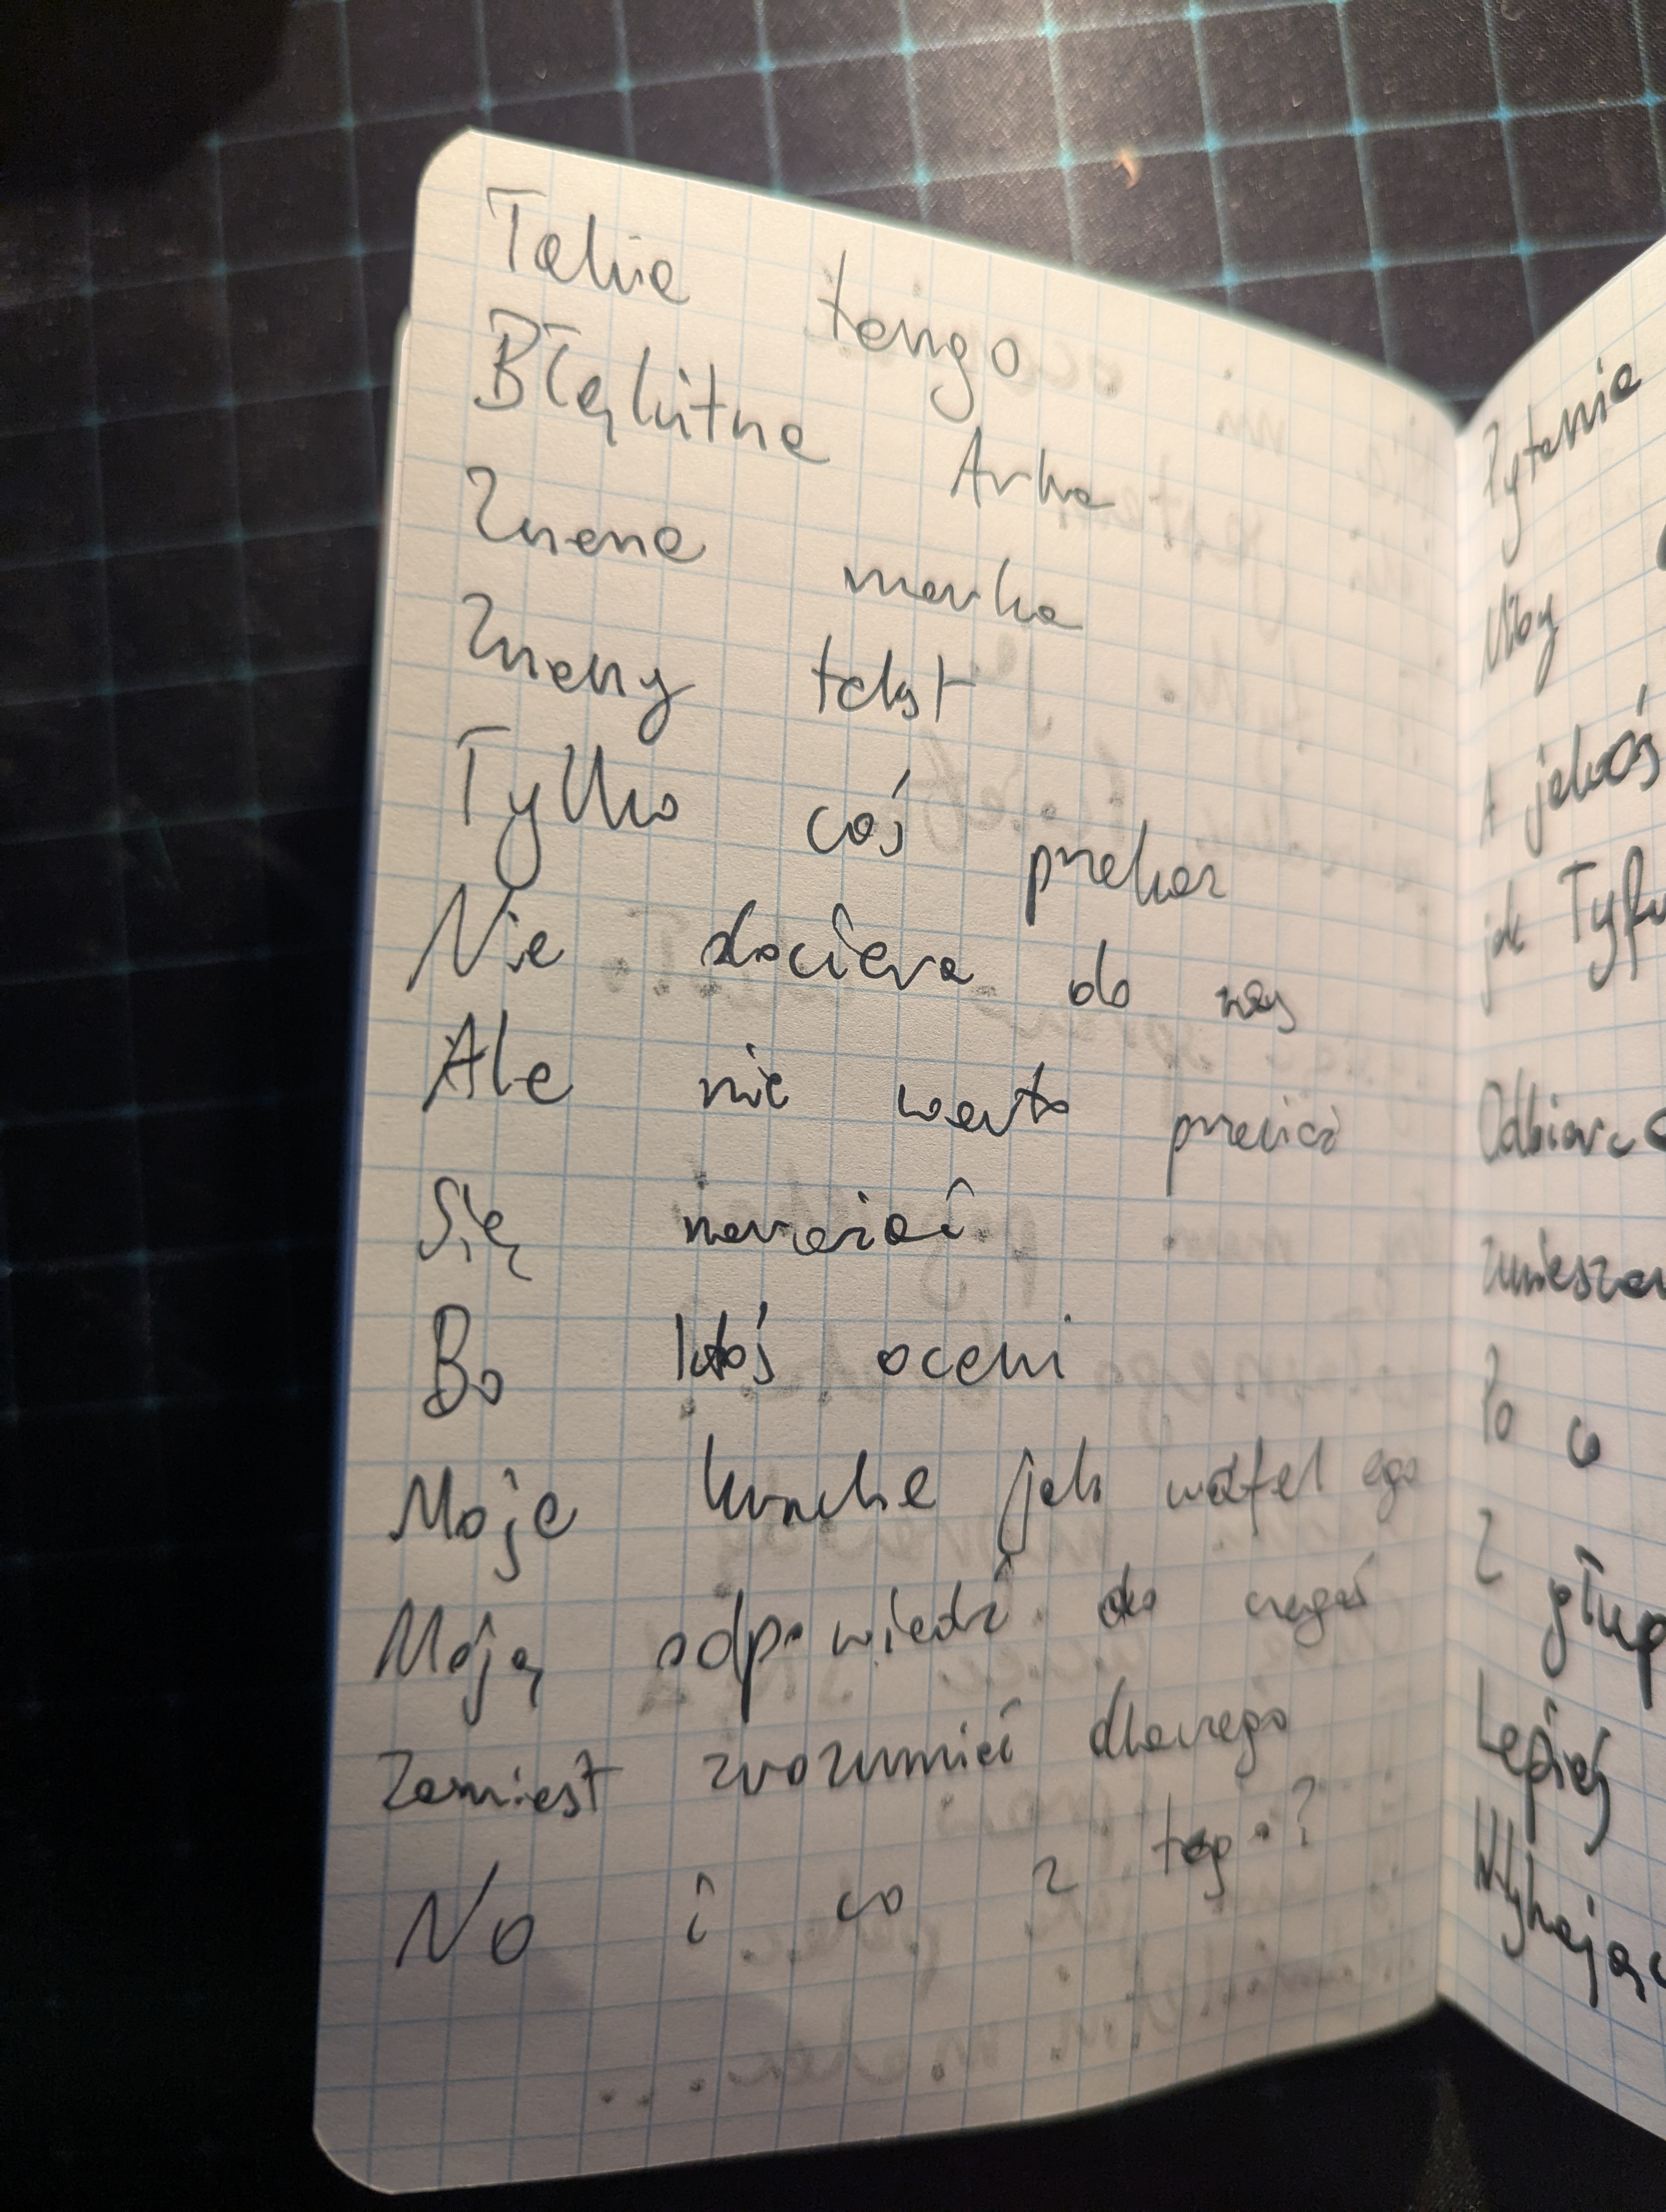 Takie tango
Błękitna Arka
Znana marka
Znany tekst
Tylko coś przekaz
Nie dociera do nas
Ale nie warto przecież
Się narażać
Bo ktoś oceni
Moje kruche jak wafel ego
Moją odpowiedź do czegoś
Zamiast zrozumieć dlaczego
No i co z tego?
Pytanie
Niby
A jakoś
jak Tyfu
Odbiorc
zmieszan
Po co
Z głup
Lepiej
Wtykając